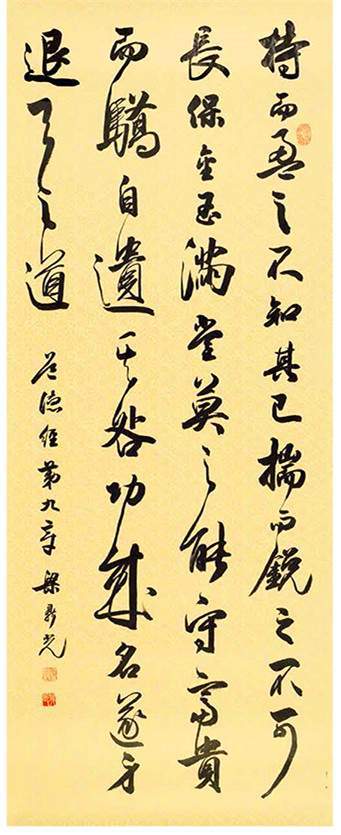 持而盈之不知其已揣而銳之不可
長保金玉滿堂莫之能守富貴
而驕自遺其咎功成名遂身
退天之道
道德經第九章 梁鼎光